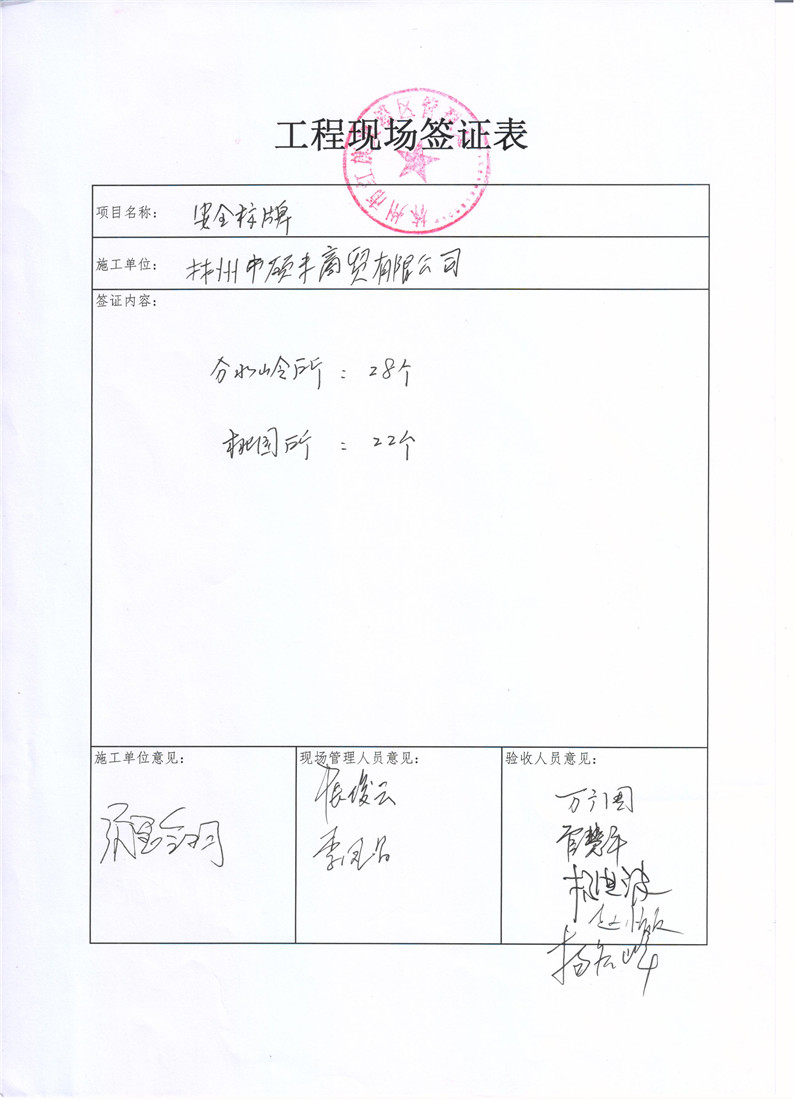 工程现场签证表
林州市红旗渠灌区管理
项目名称： 安全标牌
施工单位： 林州市硕丰商贸有限公司
签证内容：
分水岭令所 ： 28个
桃园所 ： 22个
施工单位意见：
现场管理人员意见：
验收人员意见：
张俊云
李凤吕
万广周